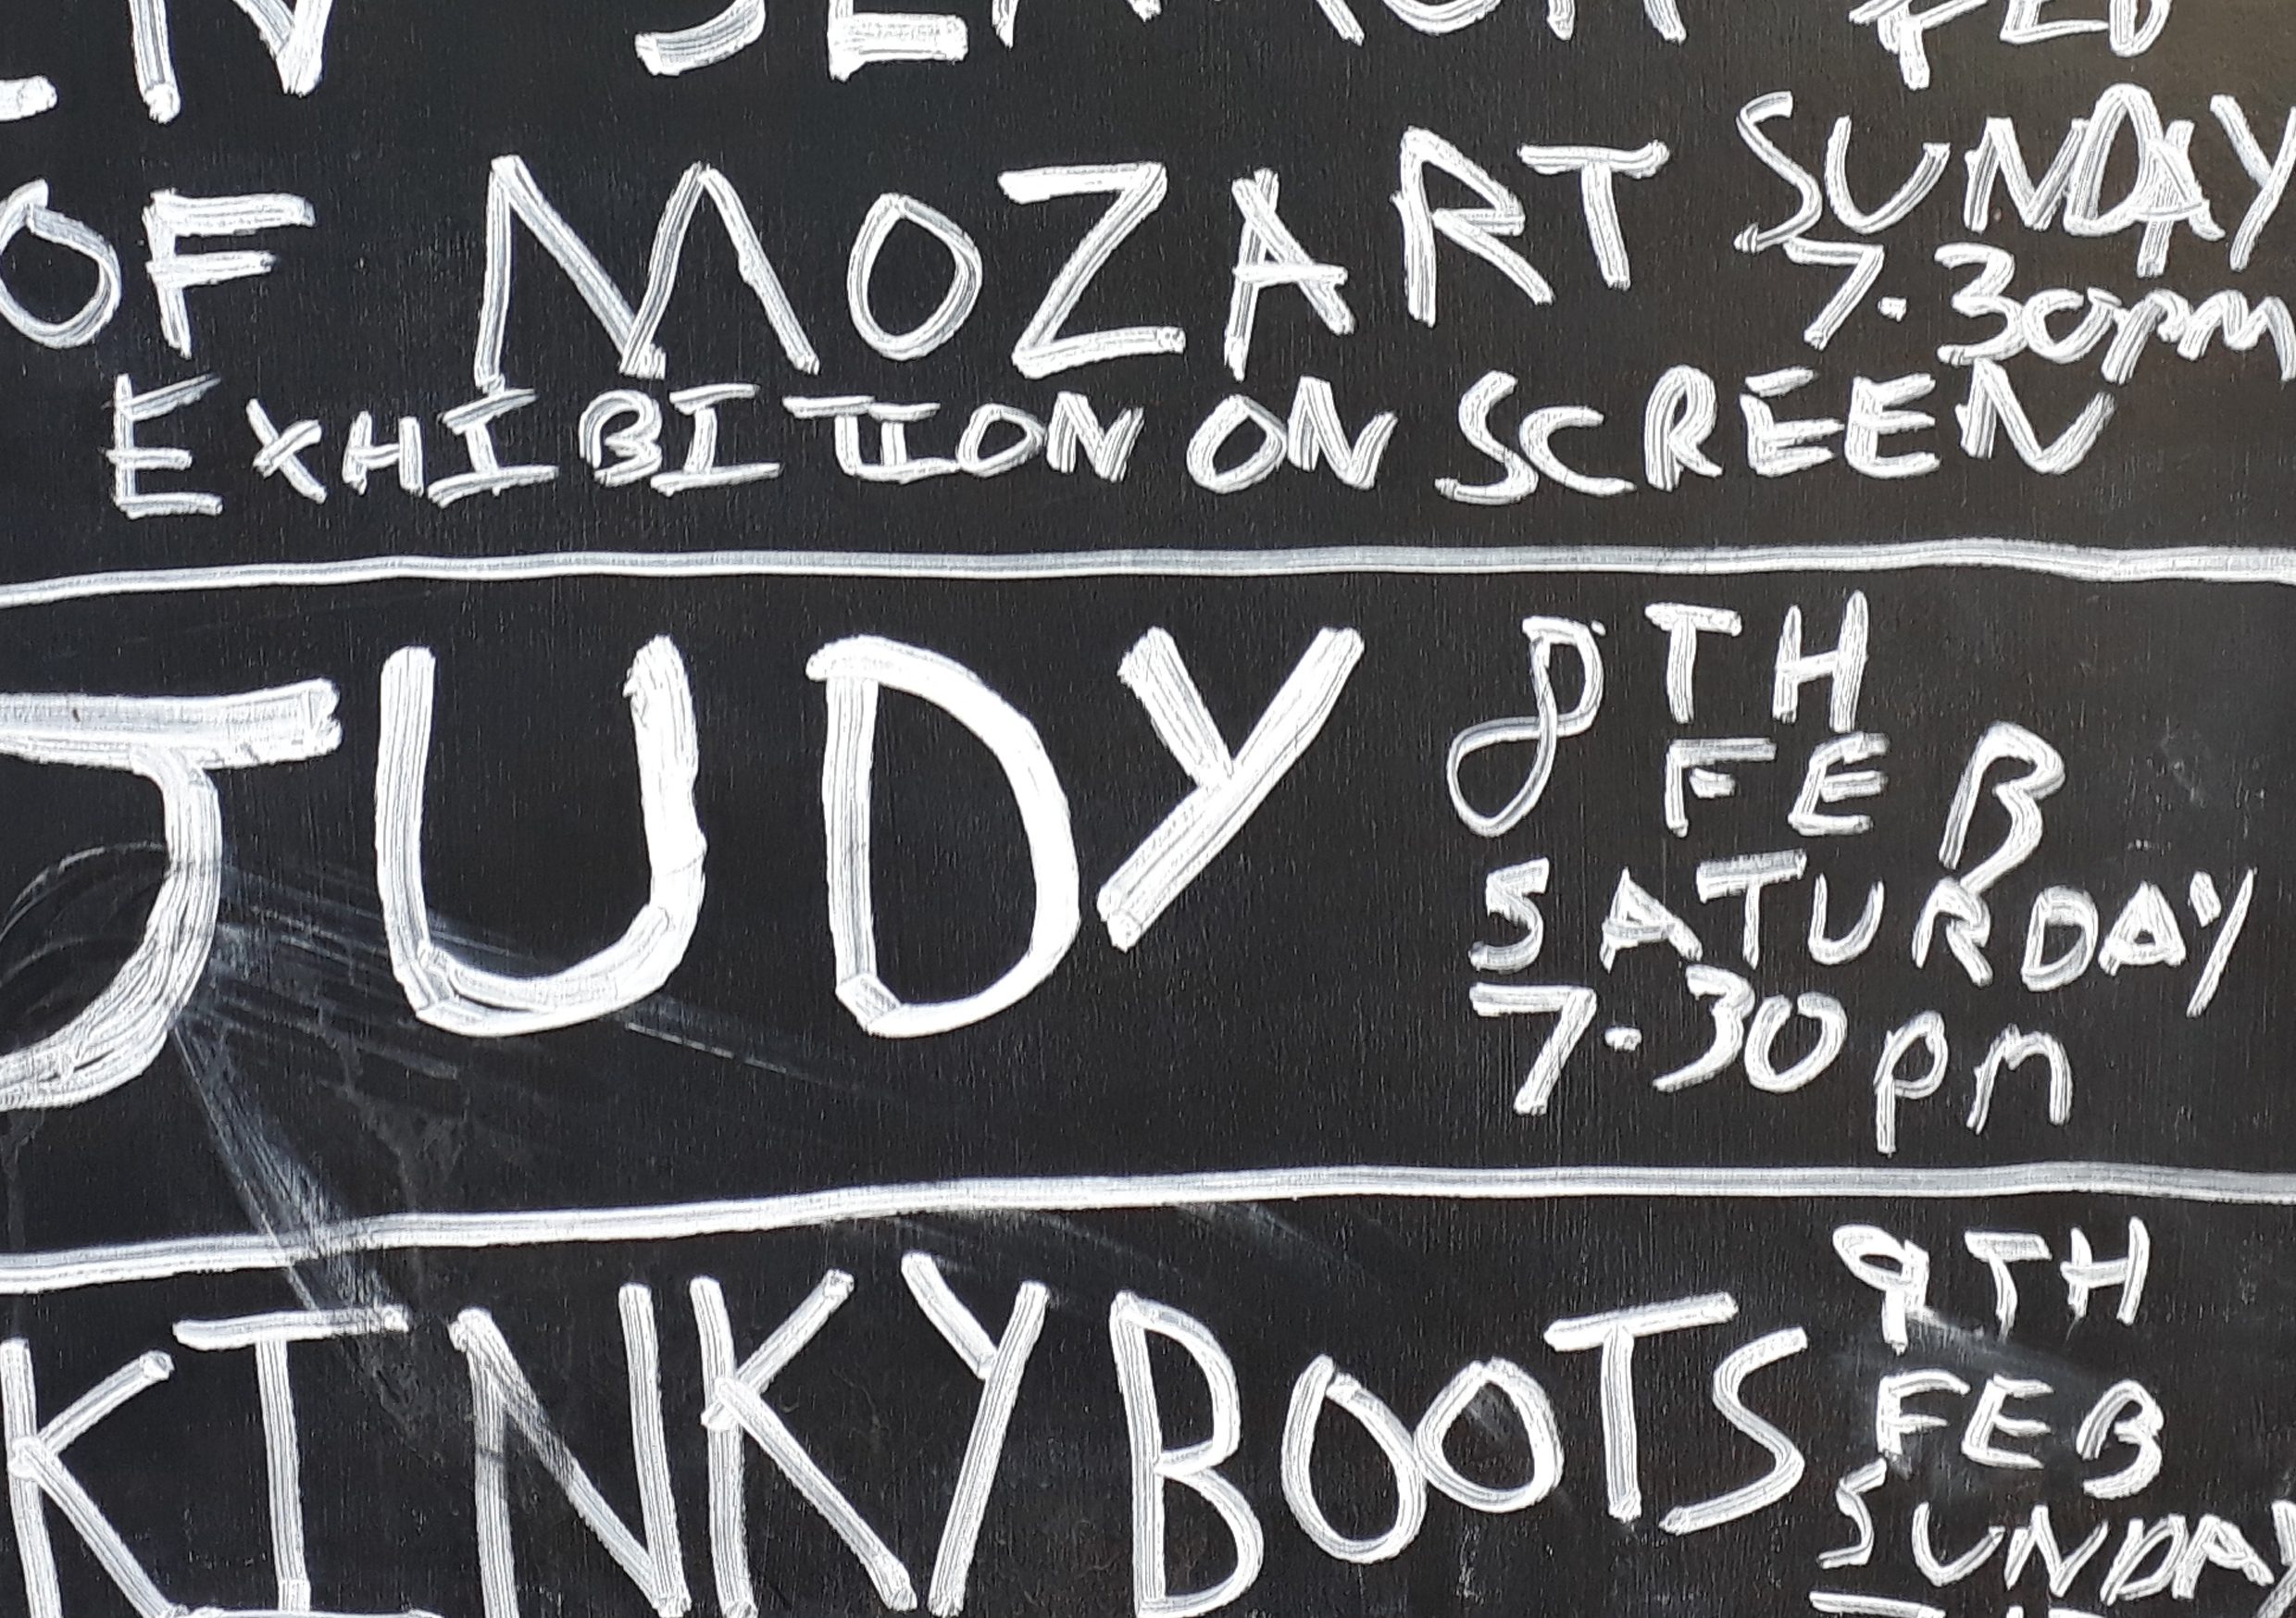 IN SEARCH FEB
OF MOZART SUNDAY
7.30pm
EXHIBITION ON SCREEN
JUDY 8TH
FEB
SATURDAY
7.30pm
KINKY BOOTS 9TH
FEB
SUNDAY